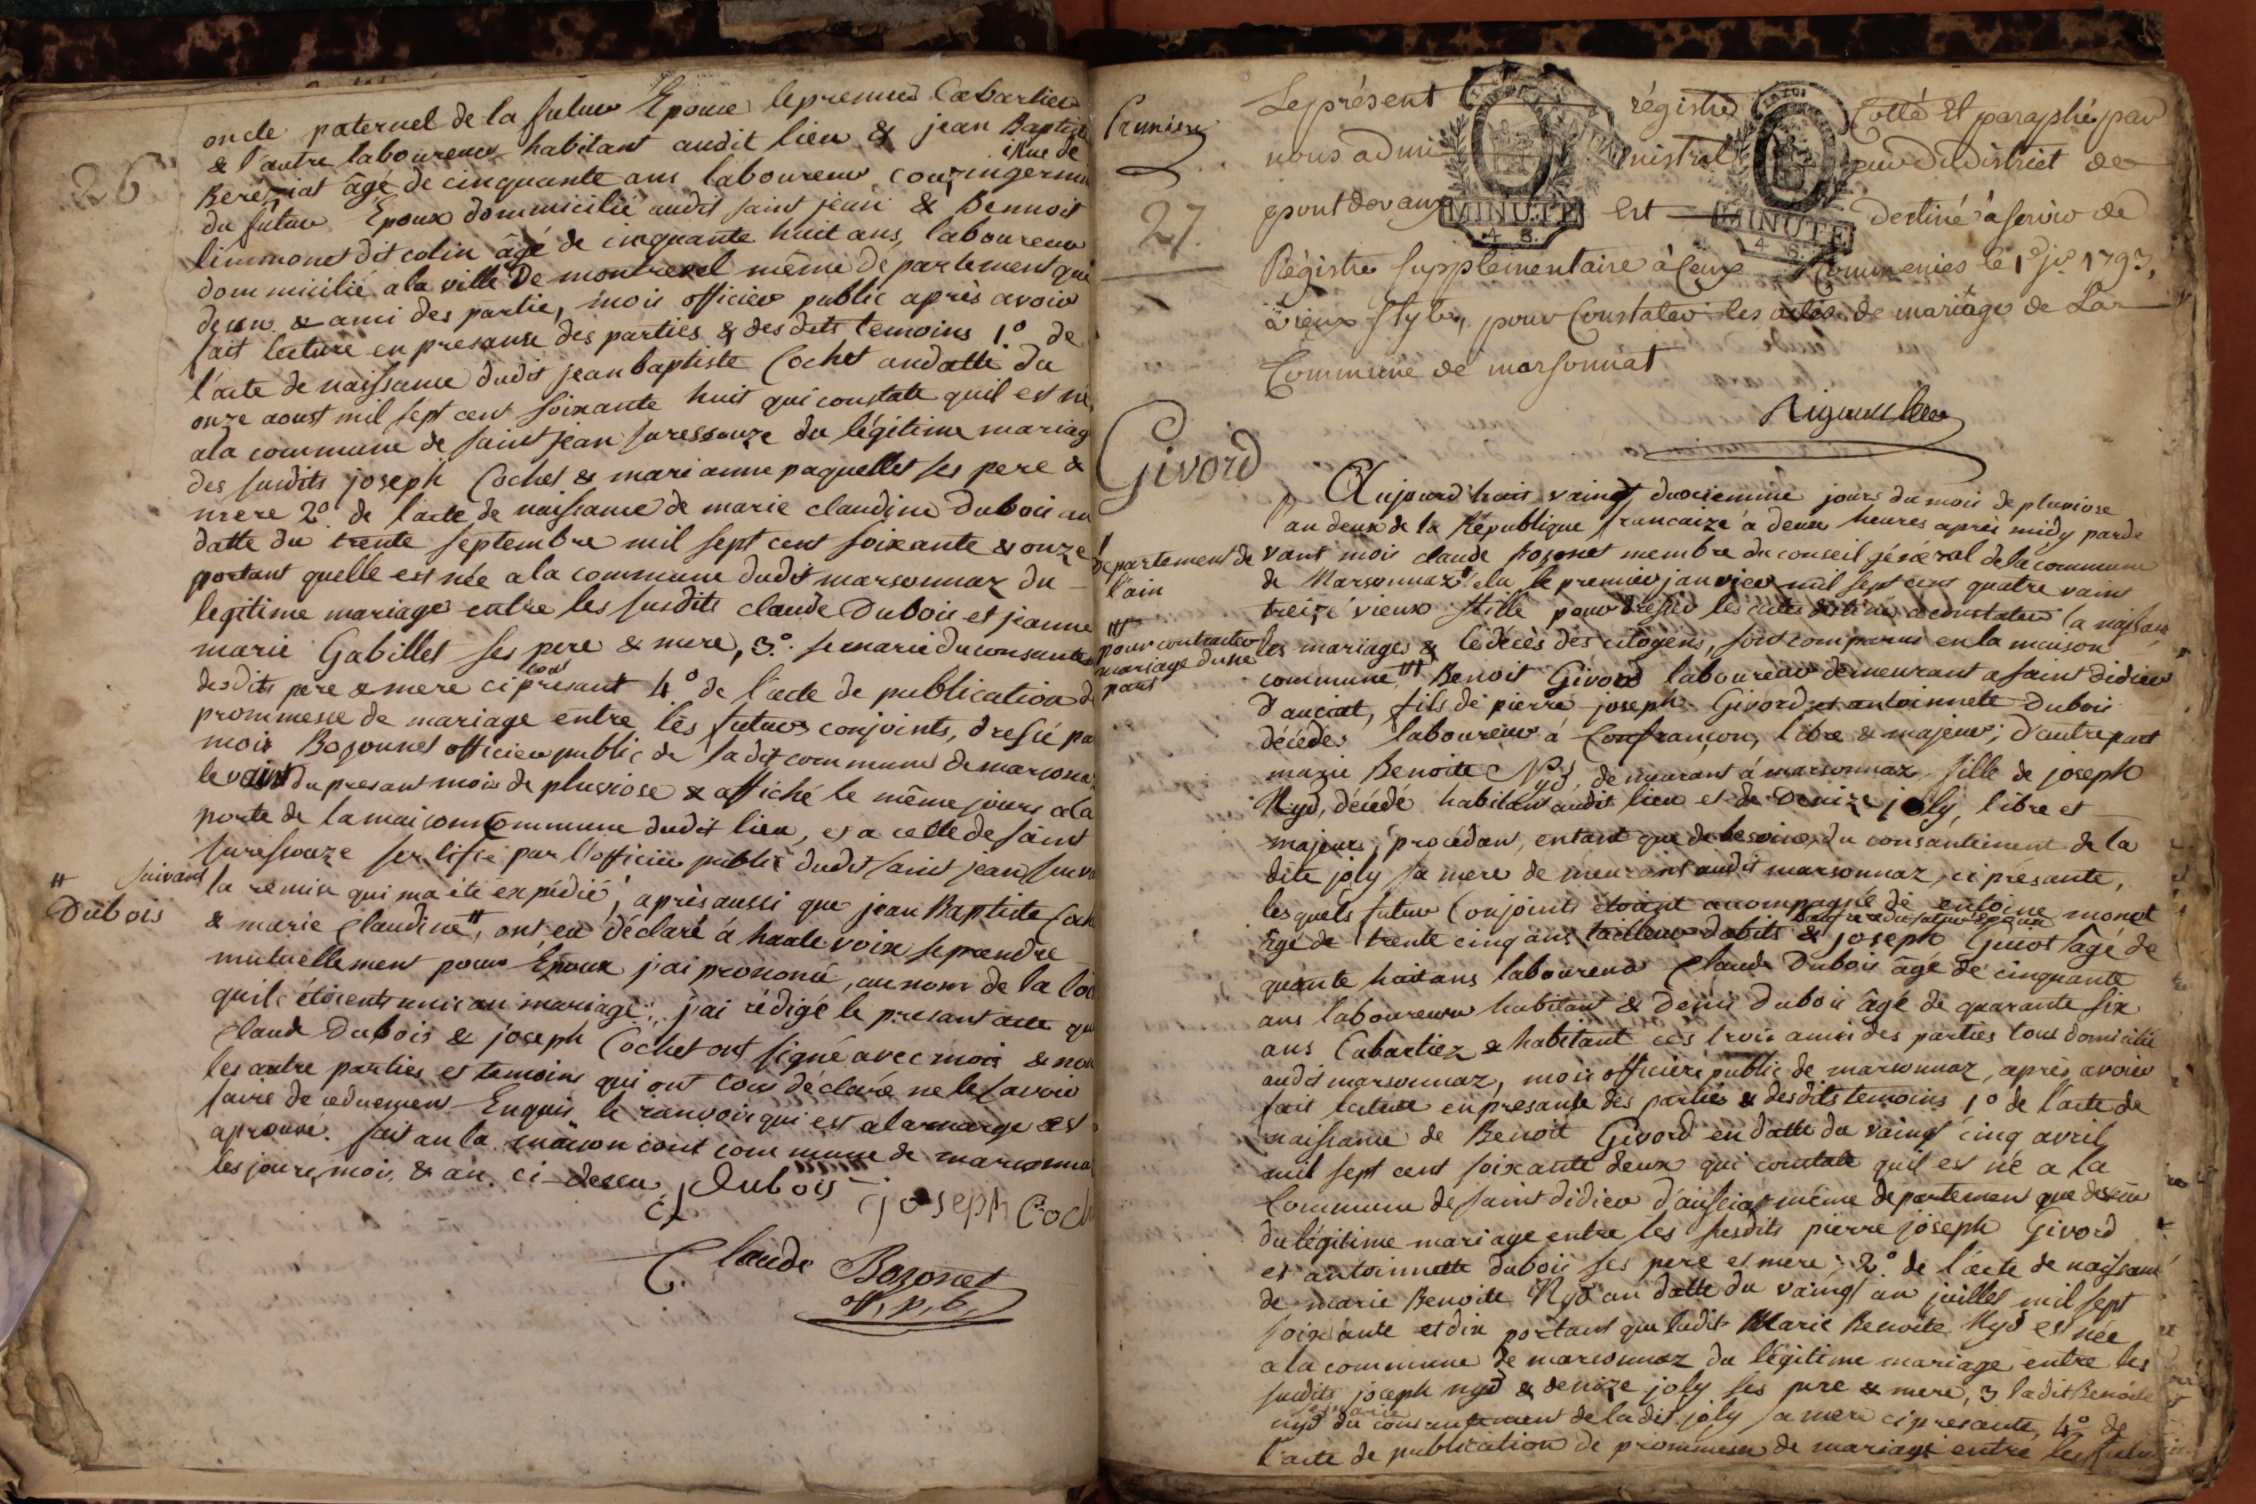 26
oncle paternel de la futur Epouse le premier Cabartier
& l'autre laboureur habitant audit lieu & jean Baptiste
Bereziat âgé de cinquante ans laboureur couzin germin
du futur Epoux dommicilié audit saint jean & Bennoit
limmonet dit colin âgé de cinquante huit ans, laboureur
dommicilié a la ville de montrevel même departement que
desun & ami des partie, mois officier public après avoir
fait lecture en presanse des parties & desdits temoins 1.º de
l'acte de naissance dudit jean baptiste Cochet andatte du
onze aoust mil sept cent soixante huit qui constate quil est né
a la commune de saint jean suressouze du légitime mariag
des susdits joseph Cochet & marianne paquellet ses pere &
mere 2.º de l'acte de naissance de marie claudine Dubois an
datte du trente septembre mil sept cent soixante & onze
portant quelle est née a la commune dudit marsonnaz du
legitime mariage entre les susdits claude Dubois et jeanne
marie Gabillet ses pere & mere, 3.º se marie du consante
desdits pere & mere ci tous présant 4.º de l'acte de publication d
prommesse de mariage entre les futurs conjoints, dressé pa
mois Bozonnet officier public de la dit commune de marsona
le vaint du presant mois de pluviose & affiché le même jours a la
porte de la maison Commune dudit lieu, et a celle de saint
suressouze sertifié par l'officier public dudit saint jean sur
suivant la remise qui ma été expédié, après aussi que jean Baptiste Coch
# Dubois
& marie Claudine #, ont eu déclaré á haute voix se prendre
mutuellement pour Epoux j'ai prononcé, au nom de la loi
quils étoients unis an mariage; j'ai rédigé le presant acte que
Claude Dubois & joseph Cochet ont signé avec mois & non
les autre parties et temoins qui ont tous déclaré ne le savoir
faire de ce Enquis le ranvois qui est a la marge est
aprouve. fait an la maison commune de marsonna
les jours, mois, & an. ci dessu
Dubois
joseph Coch
Claude Bozonet
off, p, b,
27
Le présent régistre Cotté Et paraphé par
nous administrateur du District de
pont de vaux Est destiné à servir de
MINUTE
4 S.
MINUTE
4 S.
Régistre Supplémentaire à Ceux Commencés le 1er jer 1793,
vieux style, pour Constater les actes de mariage de La
Commune de marsonnat
Givord
Aujourd'huit vaingt deuxiemme jours du mois de pluviose
an deux de la République francaize a deux heures après midy parde
vant mois claude Bozonet membre du conseil général de la commune
departement de l'ain
de Marsonnaz elu le premier janvier mil sept cent quatre vaint
treize vieux stille pour dresser les actes destiné a constater la naissan
les mariages & le décès des citoyens, sont comparus en la maison
# pour contracter mariage dune part
commune # Benoit Givord laboureur demeurant a saint didier
d'auciat, fils de pierre joseph Givord et antoinnete Dubois
décédes laboureur á Confrançon, libre & majeur; d'autre part
marie Benoite Nyd demeurant á marsonnaz fille de joseph
Nyd, décédé habitant audit lieu et de Denize joly, libre et
majeure, procédan, entant que de besoins, du consantement de la
dite joly sa mere demeurant audit marsonnaz, ci présante,
les quels futur Conjoints étoient accompagné de entoine monet
âgé de trente cinq ans tailleur d'abits beaufrere du futur epoux & joseph Guiot âgé de
quante huit ans laboureur Claude Dubois âgé de cinquante
ans laboureur habitant & Denis Dubois âgé de quarante six
ans Cabartier & habitant ces trois amis des parties tous domicilié
audit marsonnaz, mois officiere public de marsonnaz, après avoir
fait lecture en présanse des parties & desdits temoins 1.º de l'acte de
naissance de Benoit Givord en datte du vaingt cinq avril
mil sept cent soixante deux qui constate quil est né a la
Commune de saint didier d'aussiat même departement que desun
du légitime mariage entre les susdits pierre joseph Givord
et antoinnette dubois ses pere et mere; 2.º de l'acte de naissance
de marie Benoite Nyd an datte du vaingt un juillet mil sept
soixante et dix portant que ladit Marie Benoite Nyd est née
a la commune de marsonnaz du légitime mariage entre les
susdits joseph nyd & denize joly ses pere & mere, 3 ladit Benoite
nyd se marie du consantement de ladit joly sa mere ci presante, 4.º de
l'acte de publication de prommesse de mariage entre les futur